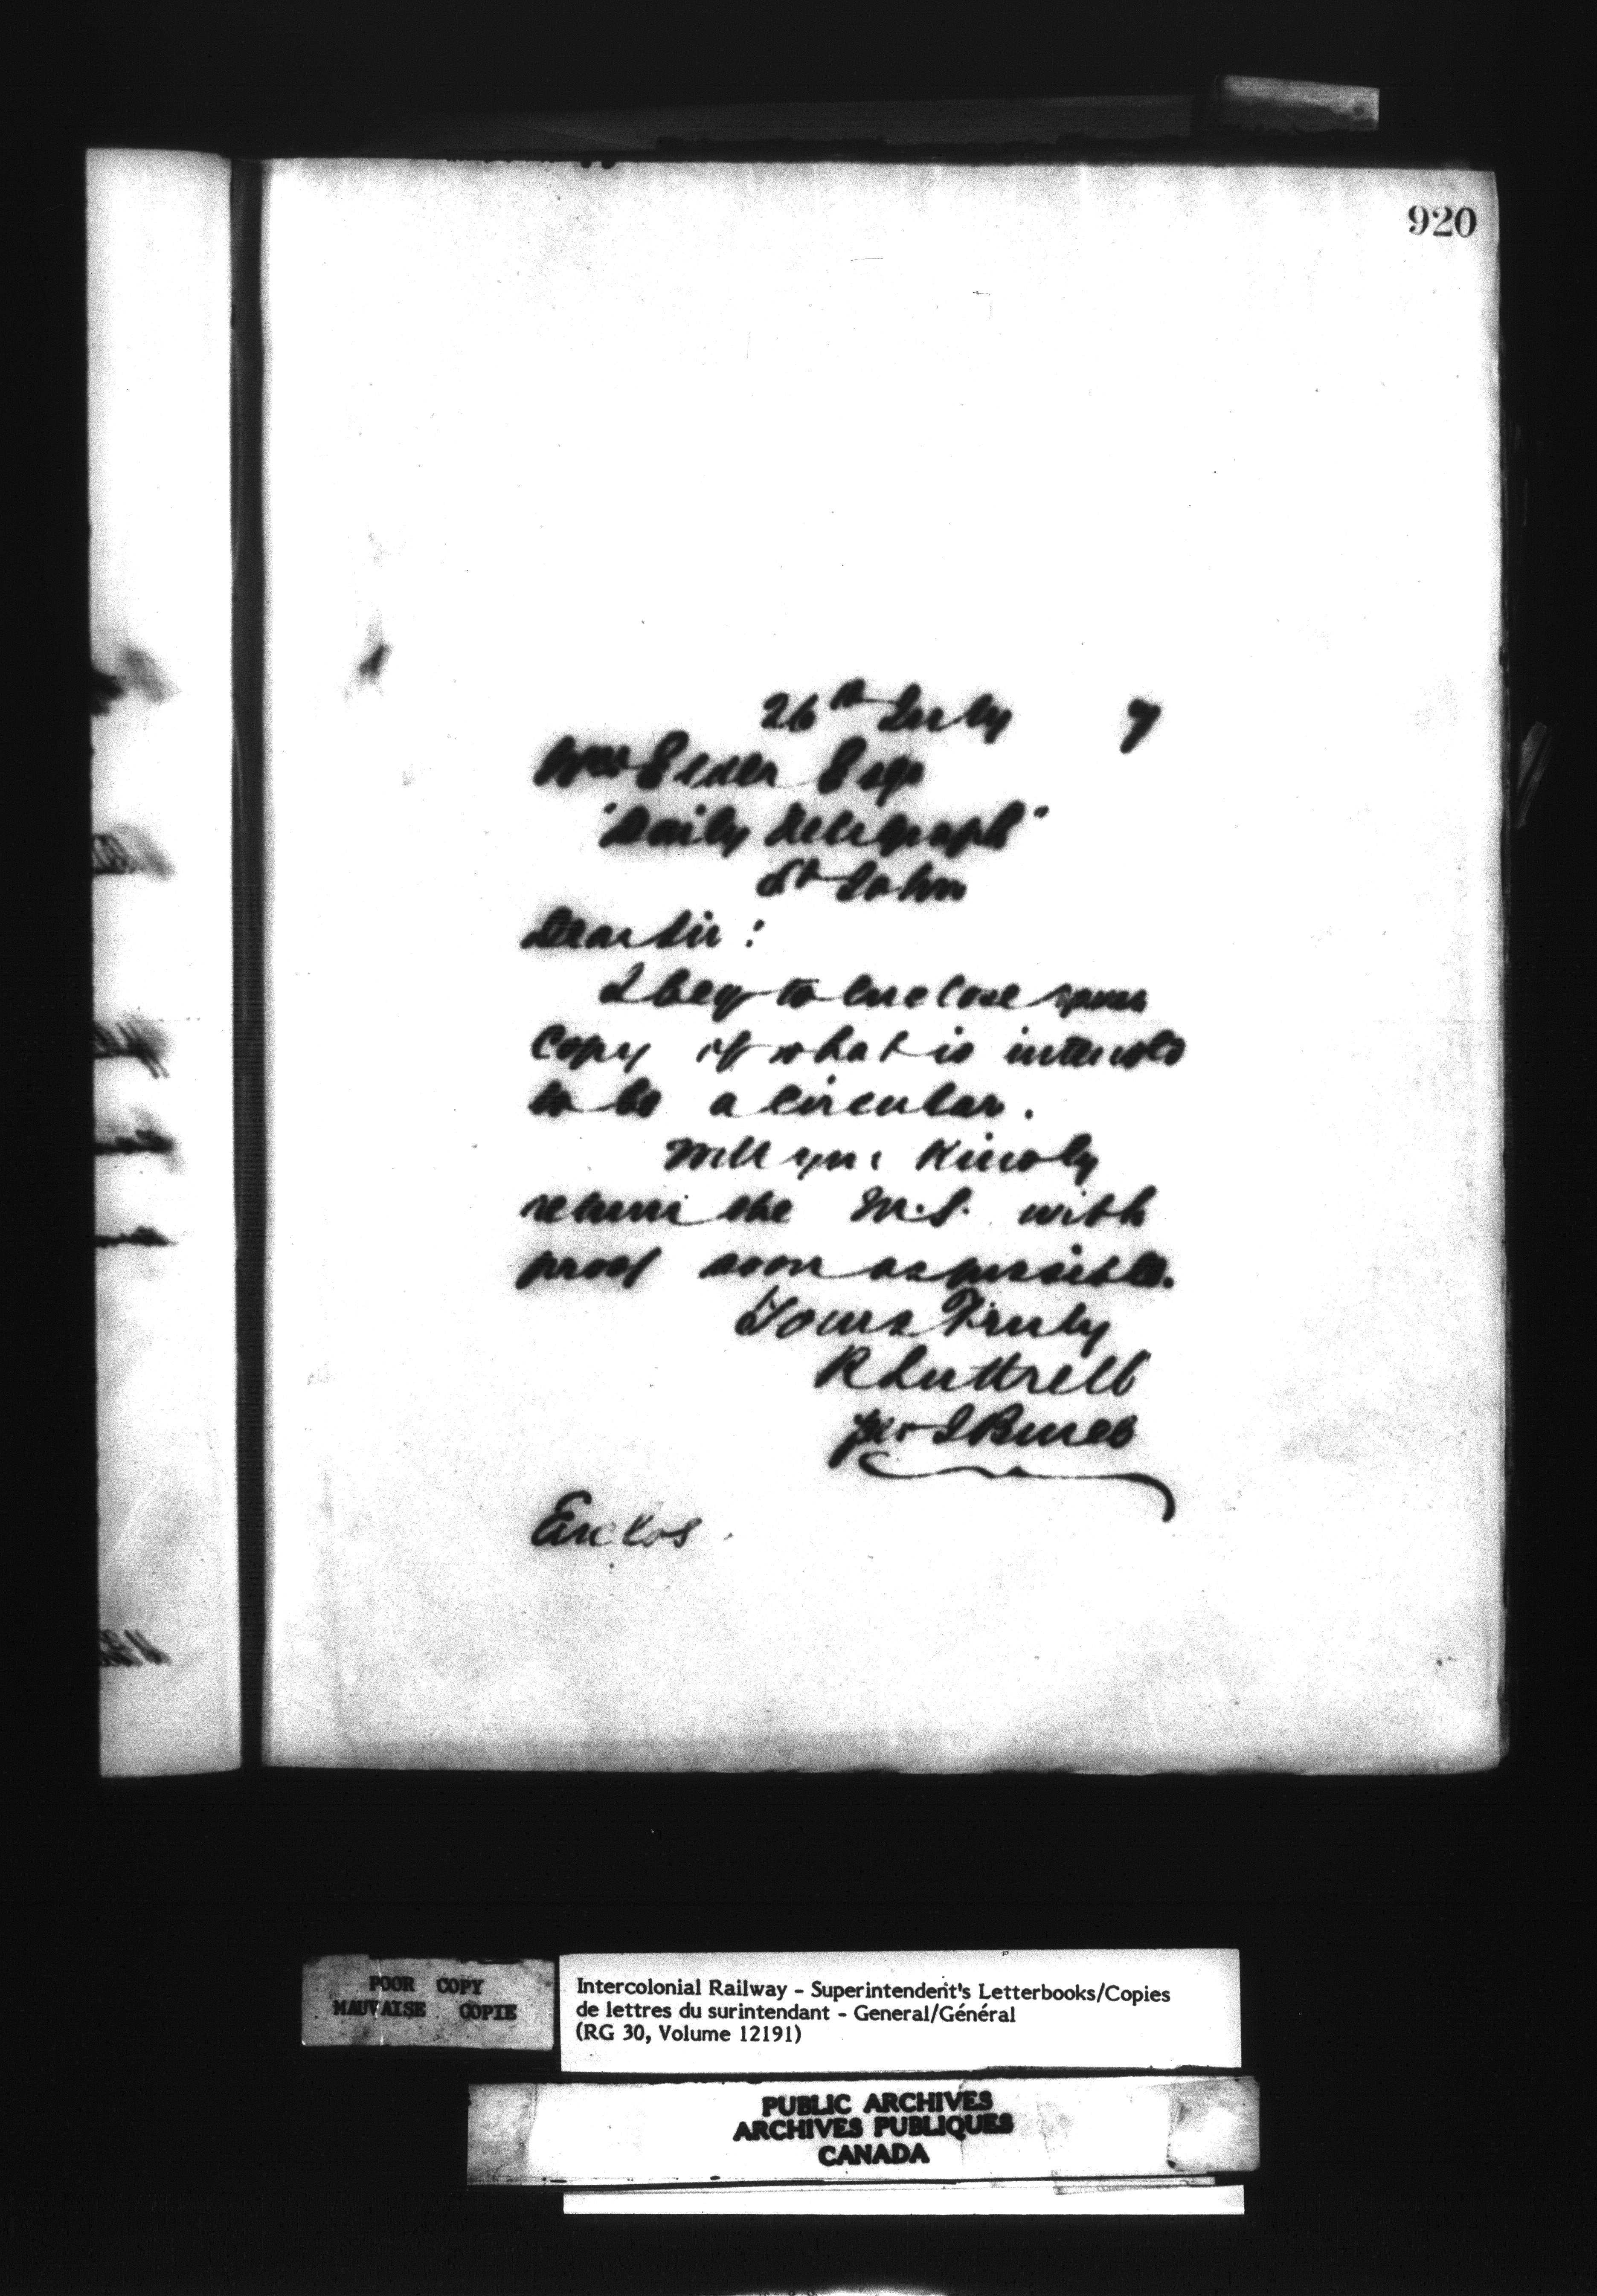 920
26th July 7
Wm Elder Esqr
"Daily Telegraph"
St John
Dear Sir :
I beg to enclose you
copy of what is intended
to be a circular.
Will you kindly
return the M.S. with
proof soon as possible.
Yours Truly
R Luttrell
per
Enclos
POOR COPY
MAUVAISE COPIE
Intercolonial Railway - Superintendent's Letterbooks/Copies
de lettres du surintendant - General/Général
(RG 30, Volume 12191)
PUBLIC ARCHIVES
ARCHIVES PUBLIQUES
CANADA